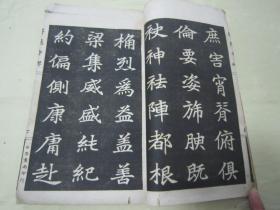 庶害宵脊俯俱
倫要姿旆腴既
杖神祛陣都根
桶烈為益蓋善
梁集威盛純紀
約偏側康庸赴